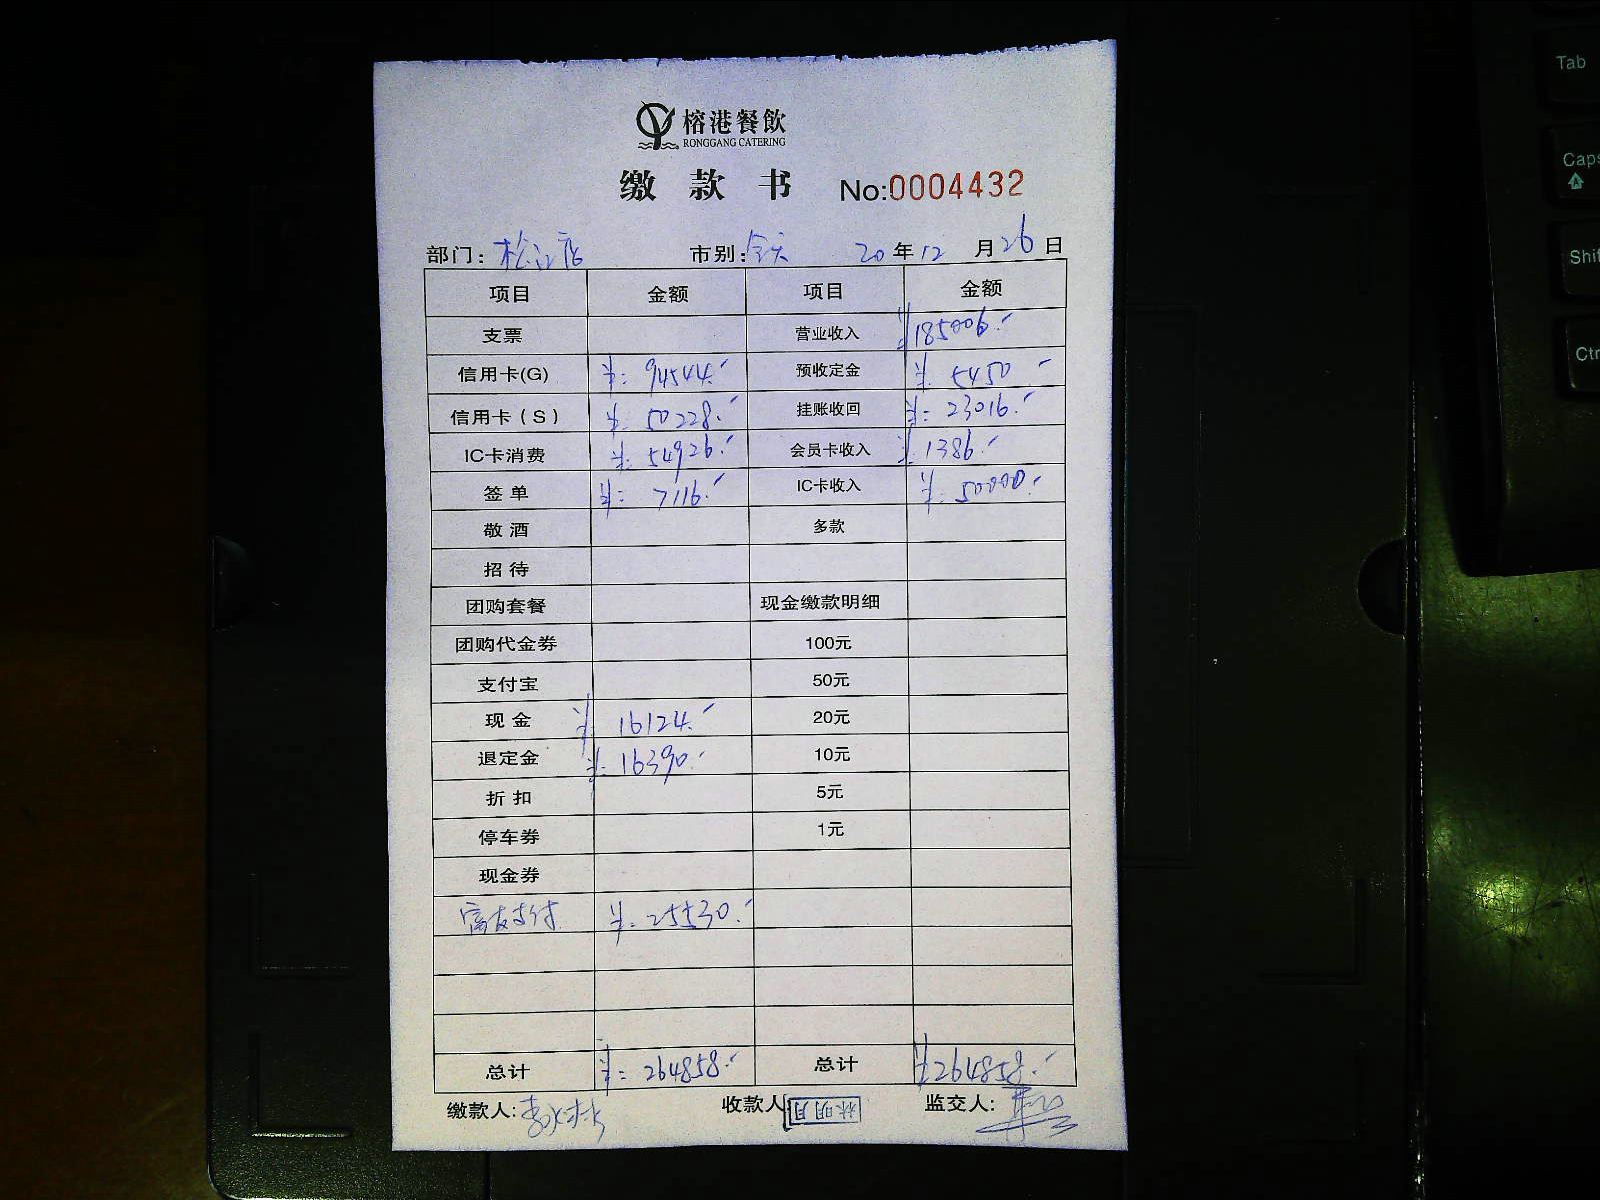 榕港餐飲
RONGGANG CATERING
缴款书 No:0004432
部门: 松江店 市别: 全天 20年12月26日
项目 金额 项目 金额
支票 营业收入 ¥185006.-
信用卡(G) ¥: 94544.- 预收定金 ¥. 5450 -
信用卡(S) ¥: 50228.- 挂账收回 ¥: 23016.-
IC卡消费 ¥: 54926.- 会员卡收入 ¥.1386.-
签单 ¥: 7116.- IC卡收入 ¥. 50000.-
敬酒 多款
招待
团购套餐 现金缴款明细
团购代金券 100元
支付宝 50元
现金 ¥ 16124.- 20元
退定金 ¥: 16390.- 10元
折扣 5元
停车券 1元
现金券
富友支付 ¥: 25530.-
总计 ¥: 264858.- 总计 ¥264858.-
缴款人: 收款人: 林明月 监交人:
Tab
Caps
Shif
Ctr